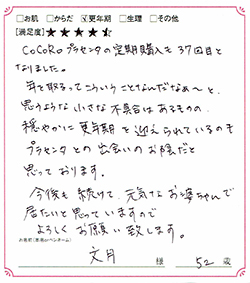 □お肌 □からだ ☑更年期 □生理 □その他
【満足度】★★★★⯪
CoCoRo プラセンタの定期購入も37回目と
なりました。
年を取るってこういうことなんだなあ〜と、
思うような小さな不具合はあるものの、
穏やかに更年期を迎えられているのも
プラセンタとの出会いのお陰だと
思っております。
今後も続けて、元気なお婆ちゃんで
居たいと思っていますので
よろしくお願い致します。
お名前(匿名orペンネーム)
文月 様 52歳